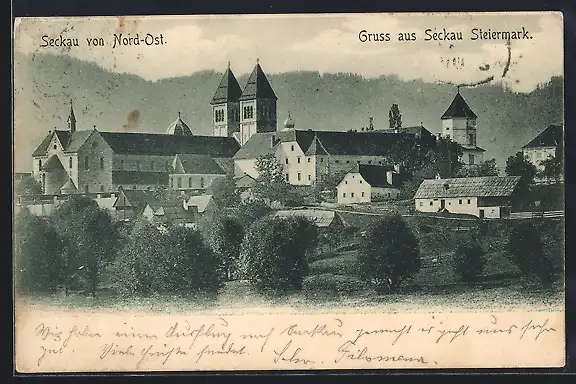 Seckau von Nord-Ost.
Gruss aus Seckau Steiermark.
Wir haben einen Ausflug nach Seckau gemacht es geht uns sehr
gut. Viele Grüsse sendet Schw. Filomena.